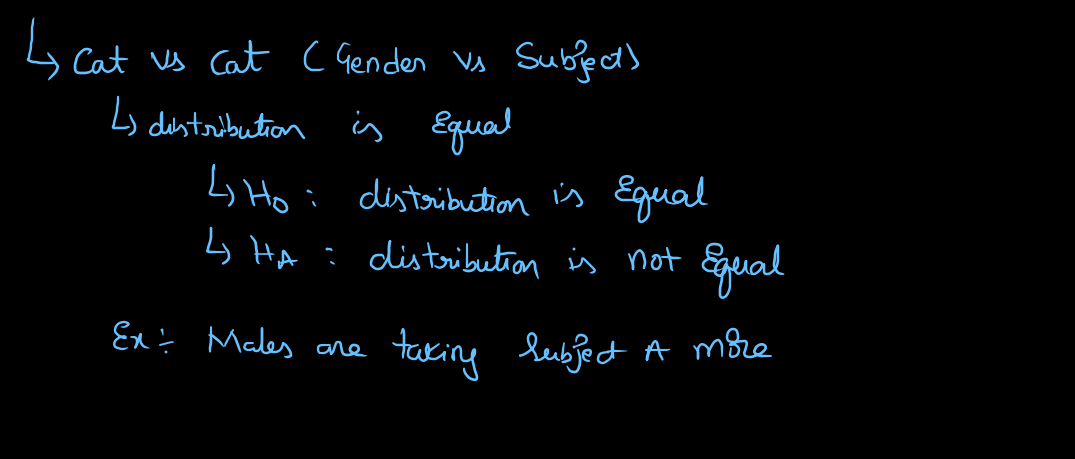 ↳ Cat vs Cat (Gender vs Subject)
↳ distribution is Equal
↳ H0 : distribution is Equal
↳ HA : distribution is not Equal
Ex ÷ Males are taking Subject A more